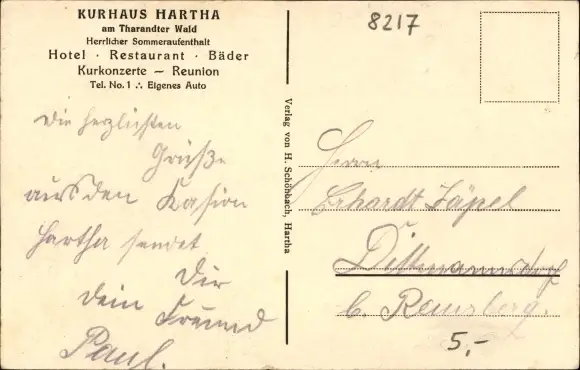 KURHAUS HARTHA
am Tharandter Wald
Herrlicher Sommeraufenthalt
Hotel · Restaurant · Bäder
Kurkonzerte – Reunion
Tel. No. 1 ∴ Eigenes Auto
Die herzlichsten
Grüße
aus den Kasion
Hartha sendet
Dir
Dein Freund
Paul.
Verlag von H. Schönbach, Hartha
8217
Herrn
Erhardt Jäpel
Dittmannsdorf
b. Reinsberg.
5,-